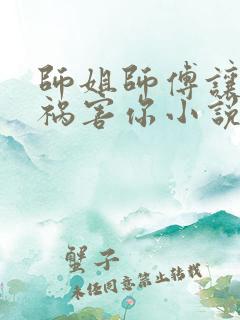 師姐師傅讓
禍害你小說
蟹子
未经同意禁止转载